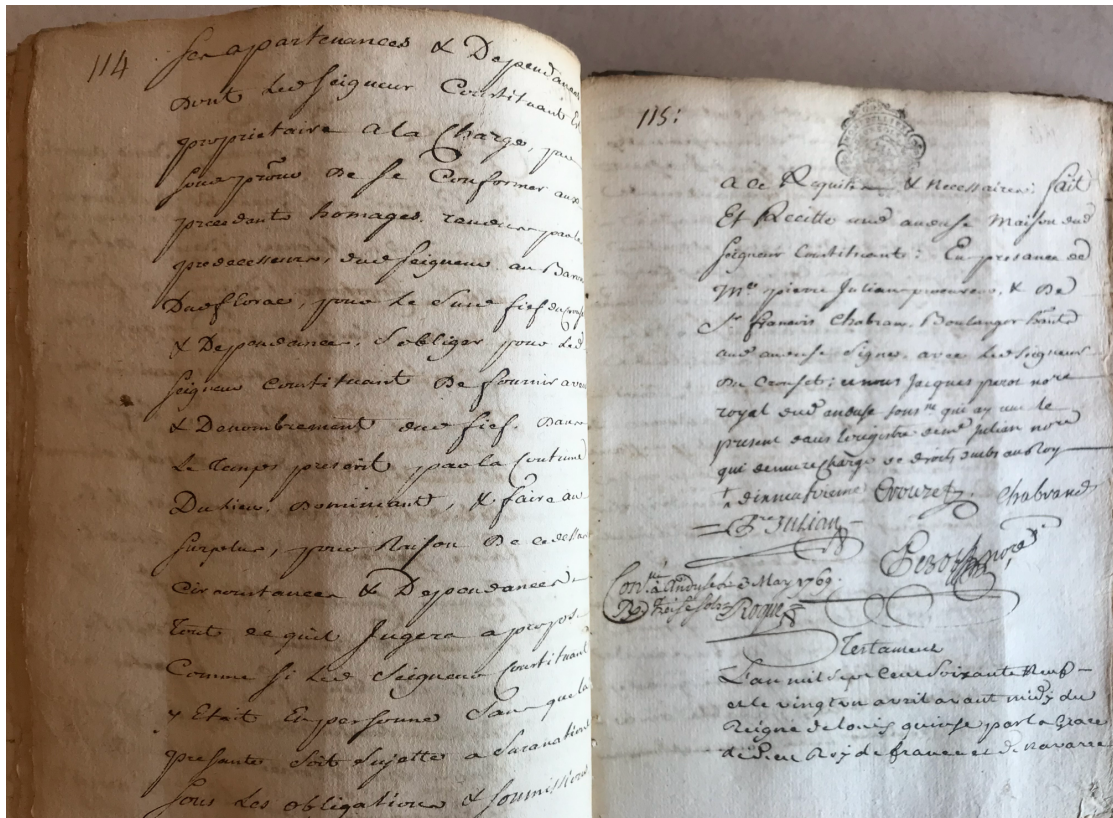 114
ses apartenances & Dependances
dont led seigneur Constituant Est
proprietaire a la Charge, par
de se Conformer aux
precedants homages, rendus par le
predecesseurs, dud seigneur au Baron
Dud florac, pour le Susd fief du
& Dependances, S obliger pour led
seigneur Constituant De fournir aveu
& Denombrement dud fief. Dans
Le Temps prescrit par la Coutume
Du lieu, Dominant, & faire au
surplus, pour Raison De ce dessus
Circonstances & Dependances
tout ce quil Jugera a propos.
Comme si led Seigneur Constituant
y Etait En personne Sans que la
presante soit Sujette a Suranation
sous les obligations & soumissions
115:
a ce Requises & Necessaires; fait
Et Recitté aud anduse Maison dud
seigneur Constituant: En presance de
Me pierre Julian procureur, & De
Sr francois Chabran, Boulanger habts
aud anduse Signes. avec led seigneur
et nous Jacques perot nore
royal dud anduse sousne qui ay mis le
present dans le registre de me Julian nore
qui demure Chargé de droits deubs au Roy
Chabrand
Julian
Perot nore
Conlle à Anduse le 3 May 1769.
R. treise sols Roque
Testament
L'an mil sept cens soixante Neuf
et le vingt un avril avant midy du
Reigne de louis quinse par la grace
de dieu Roy de france et de navarre